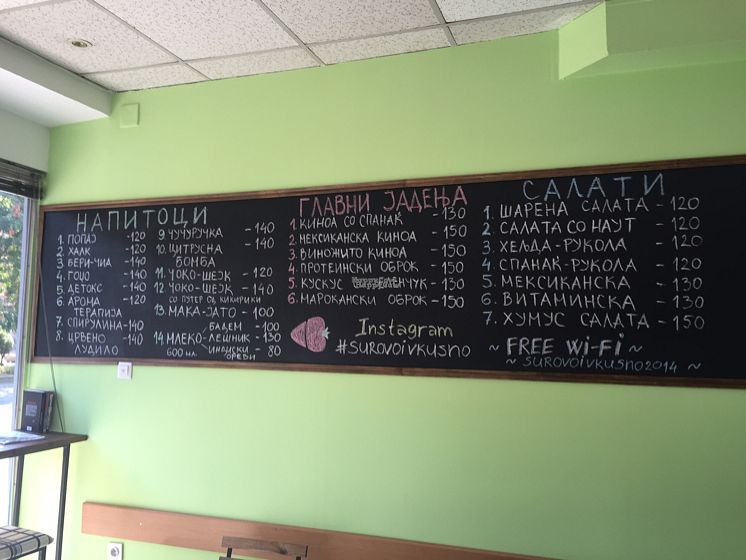 НАПИТОЦИ
1. ПОПАЈ -120
2. ХАЛК -120
3. БЕРИ-ЧИА -140
4. ГОЏО -140
5. ДЕТОКС -140
6. АРОМА -120
ТЕРАПИЈА
7. СПИРУЛИНА -140
8. ЦРВЕНО -140
ЛУДИЛО
9. ЧУЧУРЧКА -140
10. ЦИТРУСНА -140
БОМБА
11. ЧОКО-ШЕЈК - 120
12. ЧОКО-ШЕЈК - 140
СО ПУТЕР ОД КИКИРИКИ
13. МАКА-ЈАТО - 100
14 МЛЕКО
600 мл.
БАДЕМ - 100
ЛЕШНИК - 130
ИНДИСКИ - 80
ОРЕВИ
ГЛАВНИ ЈАДЕЊА
1. КИНОА СО СПАНАЌ -130
2. МЕКСИКАНСКА КИНОА -150
3. ВИНОЖИТО КИНОА -150
4. ПРОТЕИНСКИ ОБРОК -150
5. КУСКУС -130
6. МАРОКАНСКИ ОБРОК -150
Instagram
#SUROVOIVKUSNO
САЛАТИ
1. ШАРЕНА САЛАТА -120
2. САЛАТА СО НАУТ - 120
3. ХЕЉДА-РУКОЛА - 120
4. СПАНАЌ-РУКОЛА - 120
5. МЕКСИКАНСКА - 130
6. ВИТАМИНСКА - 130
7. ХУМУС САЛАТА - 150
~ FREE Wi-Fi ~
~ SUROVOIVKUSNO2014 ~